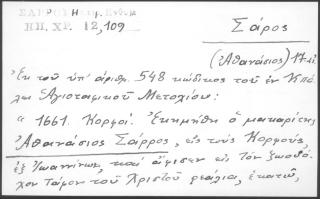 ΣΑΪΡΟΥ
ΠΗ. ΧΡ. 12,109
Σάρος
(Ἀθανάσιος) 17 αἰ.
Ἐκ τοῦ ὑπ' ἀριθμ. 548 κώδικος τοῦ ἐν Κπό-
λει Ἁγιοταφικοῦ Μετοχίου:
"1661. Κορφοί. Ἐκημήθη ὁ μακαρίτης
Ἀθανάσιος Σάρρος, εἰς τοὺς Κορφούς,
ἐξ Ἰωαννίνων, καὶ ἄφισεν εἰς τὸν ζωοδό-
χον Τάφον τοῦ Χριστοῦ ρεάλια, ἑκατῶ,